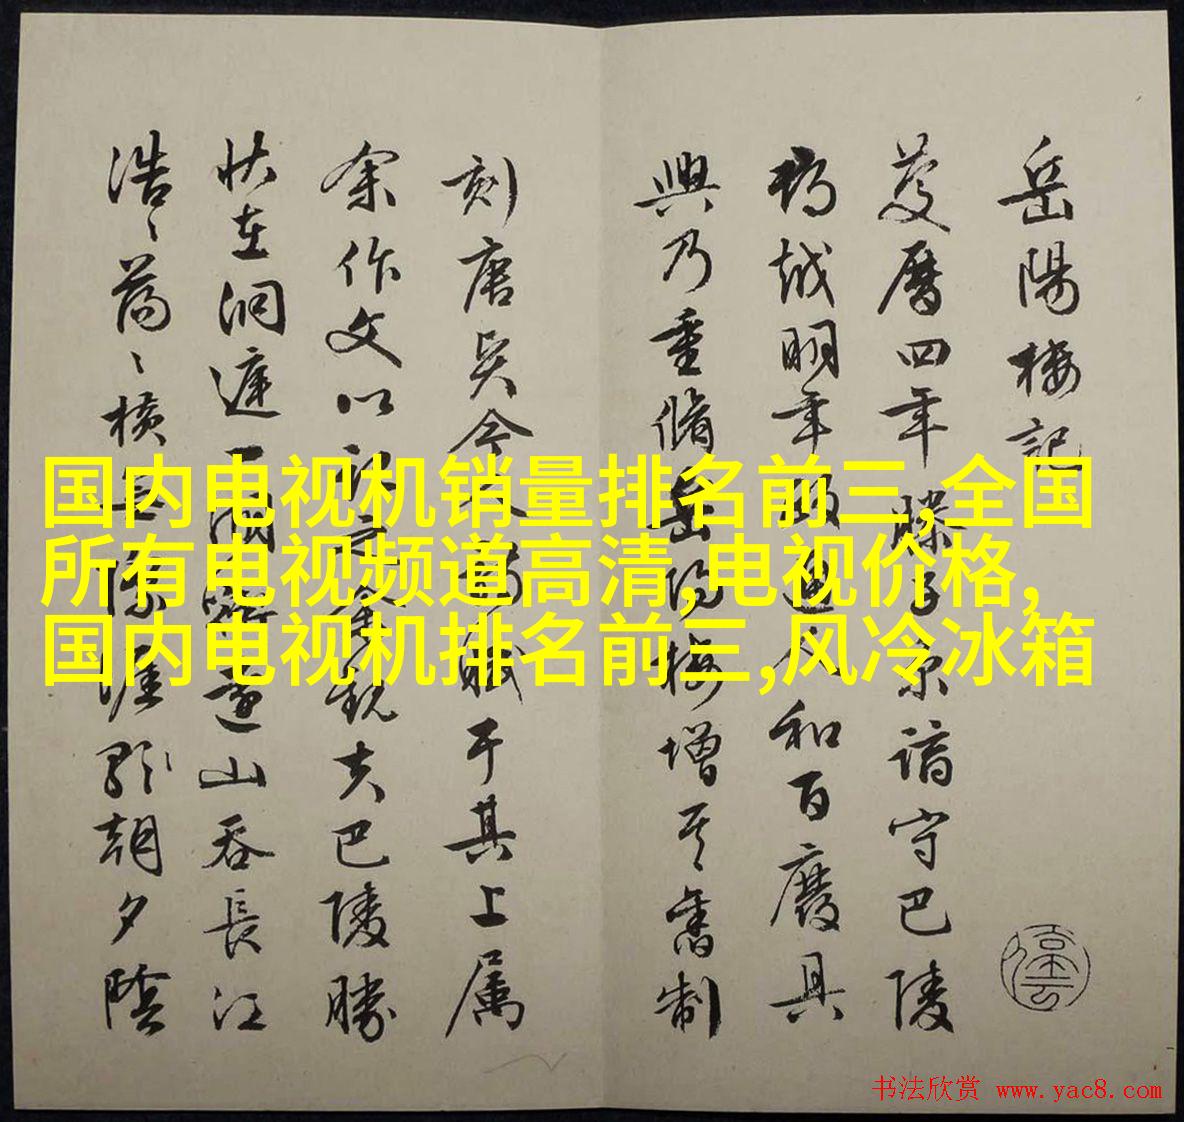 国内电视机销量排名前三,全国
所有电视频道高清,电视价格,
国内电视机排名前三,风冷冰箱
岳陽樓記
慶曆四年滕子京謫守巴陵
郡越明年政通人和百廢具
興乃重脩岳陽樓增其舊制
刻唐賢今人詩賦于其上属
余作文以記之余觀夫巴陵勝
狀在洞庭一湖銜遠山吞長江
浩〻蕩〻橫無際涯朝夕陰
书法欣赏 www.yac8.com